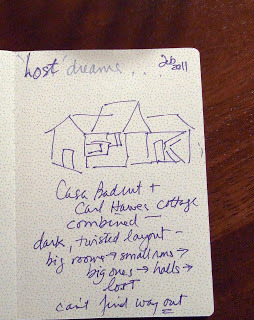 Lost dreams...
Feb 2011
Casa Padcut +
Carl Hawes Cottage
combined —
dark, twisted layout –
big rooms → small rms →
big ones → halls →
lost
can't find way out